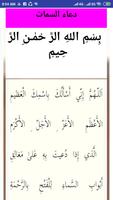 دعاء السمات
بِسْمِ اللهِ الرَّحْمٰنِ الرَّ
حِيمِ
اَللّٰهُمَّ اِنِّي أَسْأَلُكَ بِاسْمِكَ الْعَظِيمِ
الْأَعْظَمِ الْأَعَزِّ الْأَجَلِّ الْأَكْرَمِ
الَّذِي إِذَا دُعِيتَ بِهِ عَلَى مَغَالِقِ
أَبْوَابِ السَّمَاءِ لِلْفَتْحِ بِالرَّحْمَةِ